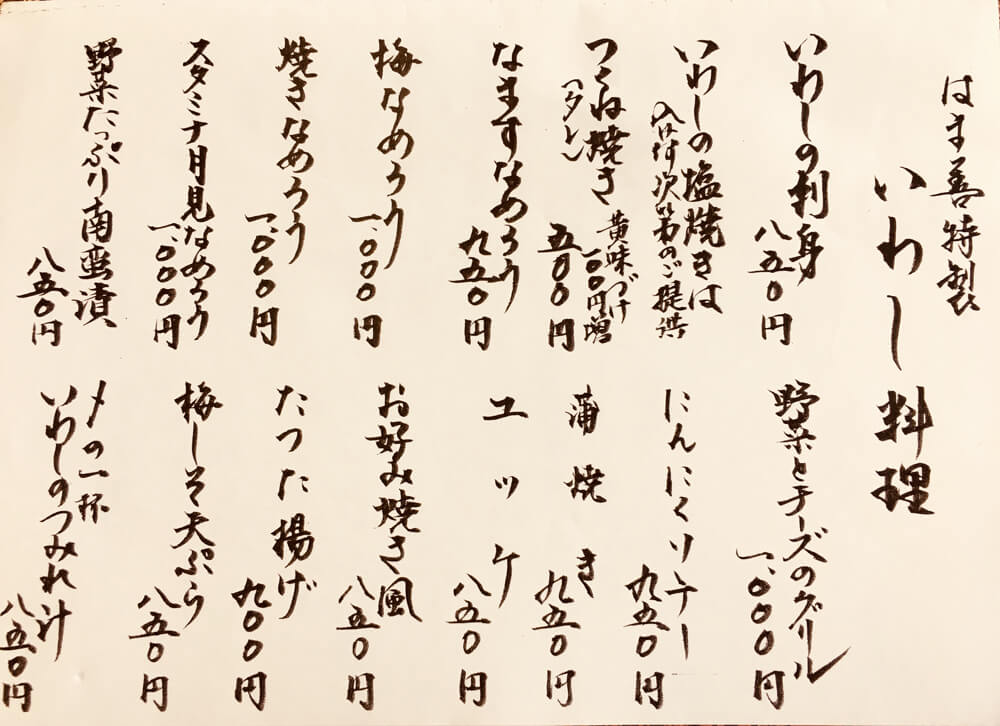 はま善特製
いわし料理
いわしの刺身
八五〇円
いわしの塩焼きは
入荷次第のご提供
つくね焼き
(タレ)
五〇〇円
黄味づけ
一〇〇円増
なますなめろう
九五〇円
梅なめろう
一、〇〇〇円
焼きなめろう
一、〇〇〇円
スタミナ月見なめろう
一、〇〇〇円
野菜たっぷり南蛮漬
八五〇円
野菜とチーズのグリル
一、〇〇〇円
にんにくソテー
九五〇円
蒲焼き
九五〇円
ユッケ
八五〇円
お好み焼き風
八五〇円
たつた揚げ
九〇〇円
梅しそ天ぷら
八五〇円
〆の一杯
いわしのつみれ汁
八五〇円